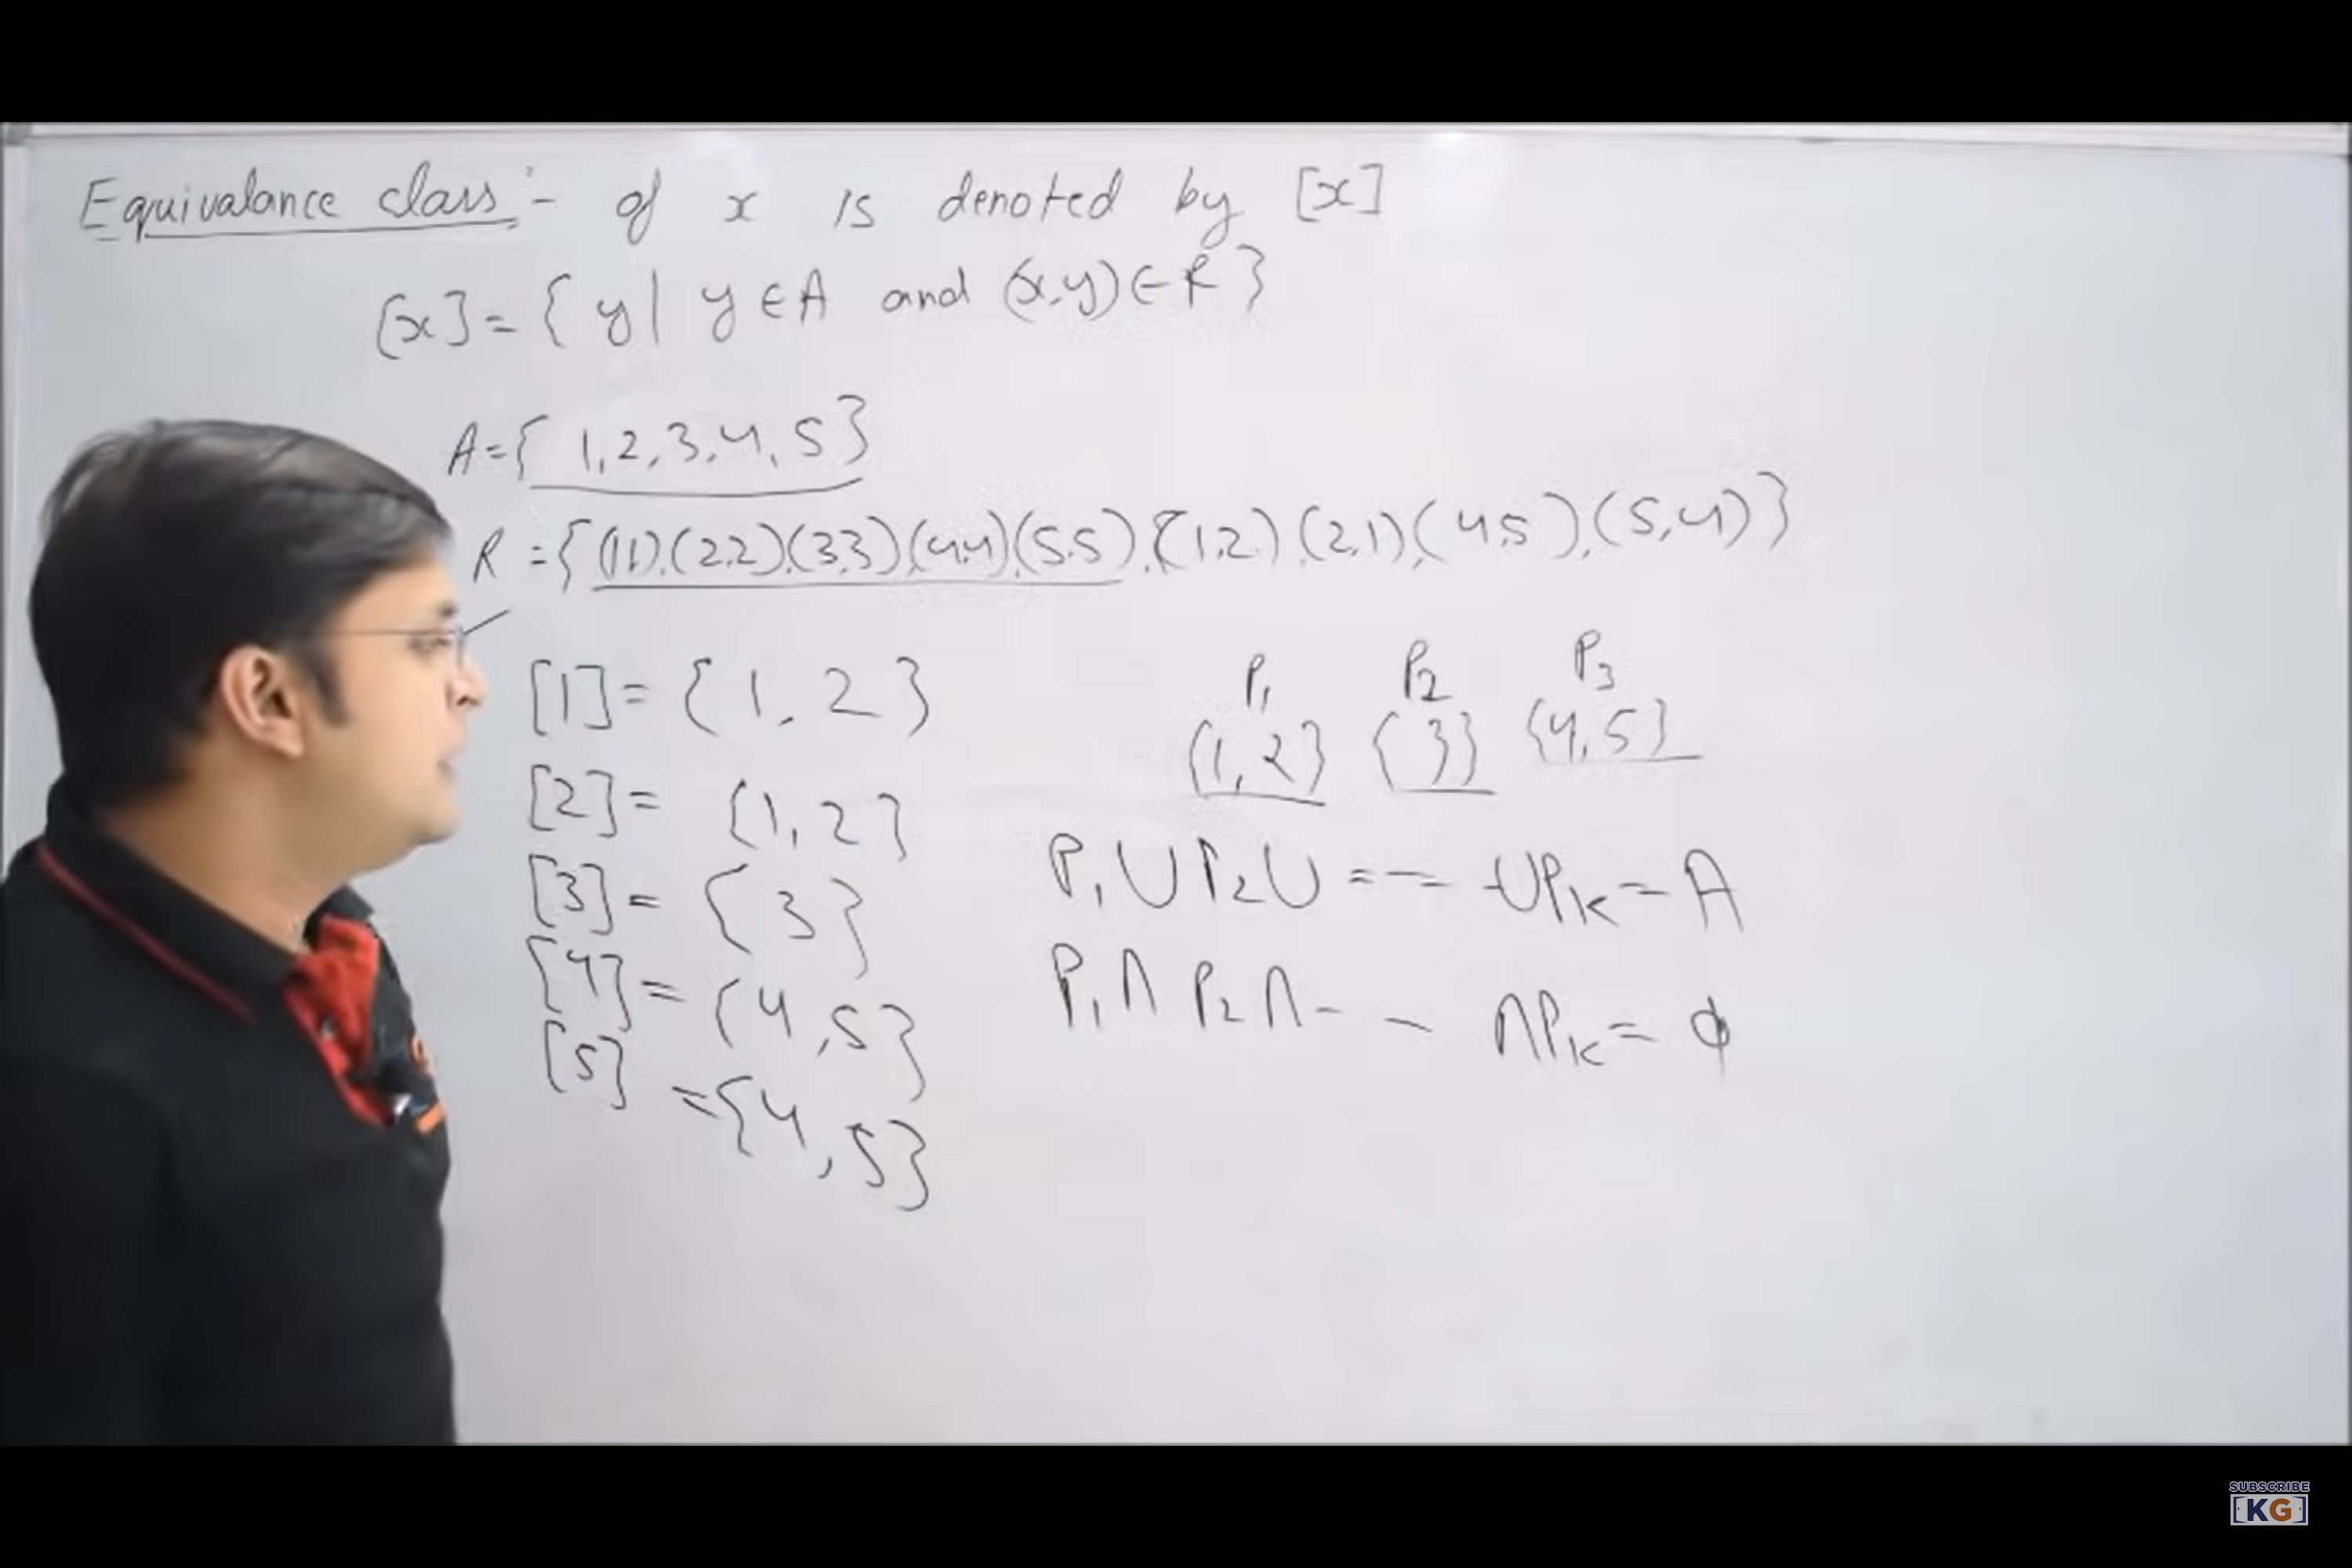 Equivalance class :- of x is denoted by [x]
[x] = { y | y ∈ A and (x,y) ∈ R }
A = { 1,2,3,4,5 }
R = { (1,1),(2,2),(3,3),(4,4),(5,5),(1,2),(2,1),(4,5),(5,4) }
[1] = { 1, 2 }
[2] = {1, 2}
[3] = { 3 }
[4] = {4,5}
[5] = {4,5}
P1 P2 P3
{1,2} {3} {4,5}
P1 ∪ P2 ∪ --- ∪ Pk = A
P1 ∩ P2 ∩ - - ∩ Pk = ϕ
SUBSCRIBE
[KG]